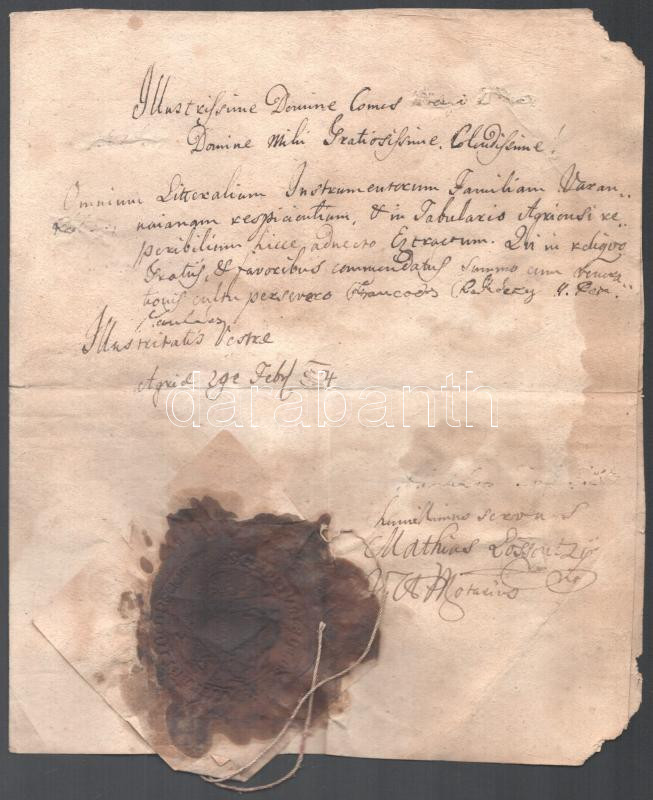 Illustrissime Domine Comes
Domine Mihi Gratiosissime, Colendissime!
Omnium Litteralium Instrumentorum Familiam Varan-
naianam respicientium, & in Tabulario Agriensi re-
peribilium hicce adnecto Extractum. Qui in reliquo
Gratiis, & favoribus commendatus summo cum venera-
tionis cultu persevero
Illustritatis Vestre
Agriæ 29e Febr
darabanth
humillimus servus
Mathias
Notarius